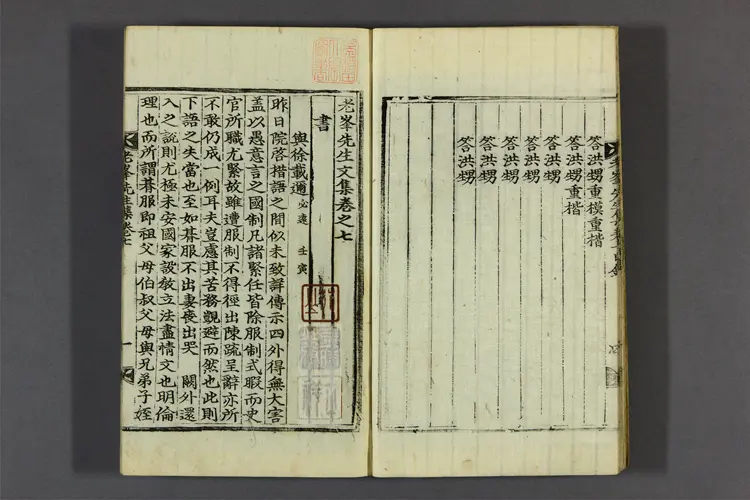 答洪甥重模重楷
答洪甥重楷
答洪甥
答洪甥
答洪甥
答洪甥
老峯先生文集卷之七
書
與徐載邇必遠 壬寅
昨日院啓措語之間似未致詳傳示四外得無大害
盖以愚意言之國制凡諸緊任皆除服制式暇而史
官所職尤緊故雖遭服制不得徑出陳疏呈辭亦所
不敢仍成一例耳夫豈慮其苦務覬避而然也此則
下語之失當也至如朞服不出妻喪出哭 闕外還
入之說則尤極未安國家設敎立法盡情文也明倫
理也而所謂朞服即祖父母伯叔父母與兄弟子姪
老峯先生集卷七
一